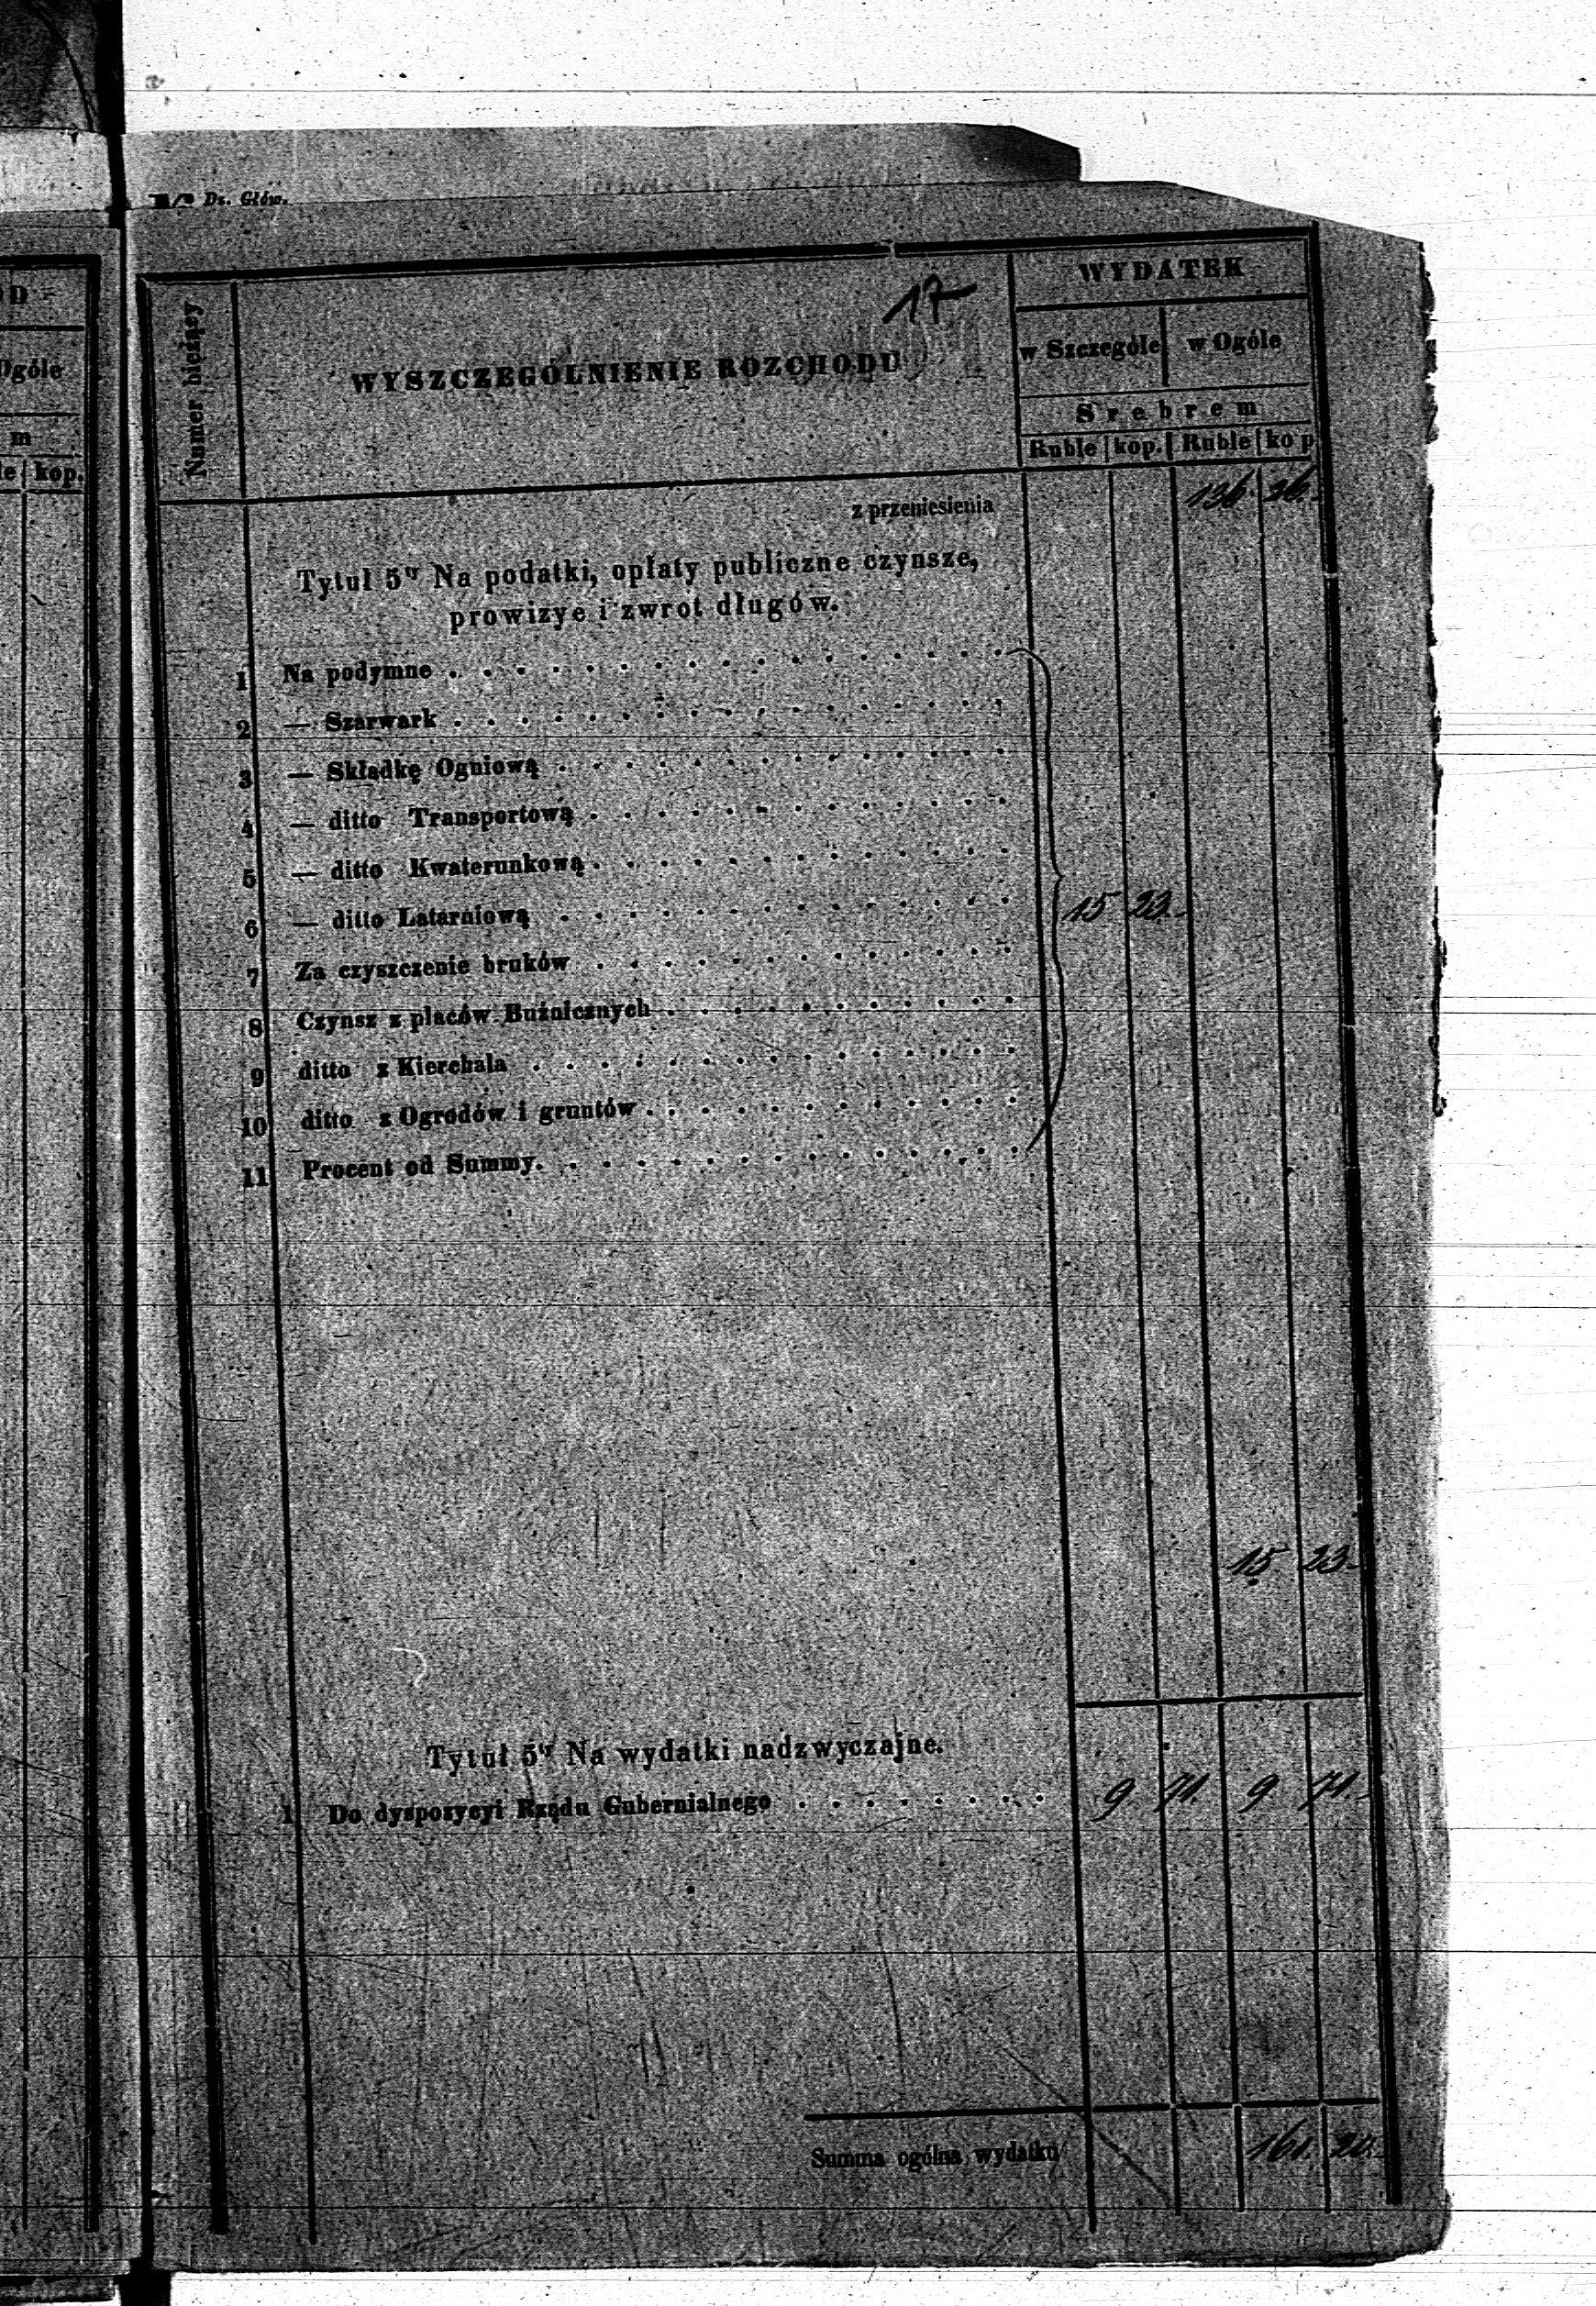 Dz. Głów.
OD
Ogóle
m
le kop.
17
Numer bieżący
WYSZCZEGÓLNIENIE ROZCHODU
WYDATEK
w Szczególe w Ogóle
Srebrem
Ruble kop. Ruble kop
z przeniesienia 136. 26.
Tytuł 5ty Na podatki, opłaty publiczne czynsze,
prowizye i zwrot długów.
1 Na podymne
2 — Szarwark
3 — Składkę Ogniową
4 — ditto Transportową
5 — ditto Kwaterunkową
6 — ditto Latarniową 15 23.
7 Za czyszczenie bruków
8 Czynsz z placów Bużnicznych
9 ditto z Kierchala
10 ditto z Ogrodów i gruntów
11 Procent od Summy.
15 23.
Tytuł 5ty Na wydatki nadzwyczajne.
1 Do dyspozycyi Rządu Gubernialnego 9 71. 9 71.
Summa ogólna wydatku 161. 20.